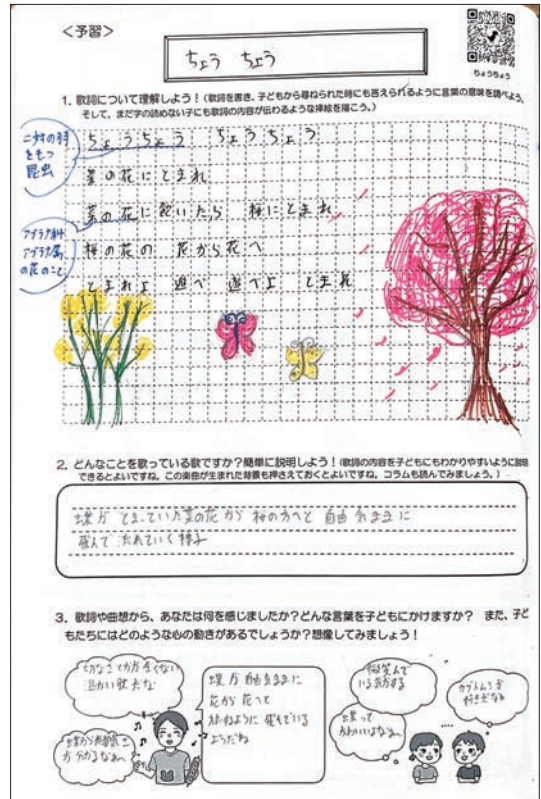 <予習>
ちょう ちょう
ちょうちょう
1. 歌詞について理解しよう！(歌詞を書き、子どもから尋ねられた時にも答えられるように言葉の意味を調べよう。
そして、まだ字の読めない子にも歌詞の内容が伝わるような挿絵を描こう。)
二対の羽
をもつ
昆虫
ちょうちょう ちょうちょう
菜の花にとまれ
菜の花に飽いたら 桜にとまれ
アブラナ科
アブラナ属
の花のこと
桜の花の 花から花へ
とまれよ 遊べ 遊べよ とまれ
2. どんなことを歌っている歌ですか？簡単に説明しよう！(歌詞の内容を子どもにもわかりやすいように説明
できるとよいですね。この楽曲が生まれた背景も押さえておくとよいですね。コラムも読んでみましょう。)
蝶が とまっていた菜の花から 桜の方へと 自由気ままに
飛んで 流れていく様子
3. 歌詞や曲想から、あなたは何を感じましたか？どんな言葉を子どもにかけますか？ また、子ど
もたちにはどのような心の動きがあるでしょうか？想像してみましょう！
温かい歌だな
が分かるなぁ〜
蝶が自由気ままに
花から花へと
ように 飛んでいる
ようだね
蝶って
かわいいなぁ〜
カブトムシが
好きだなぁ